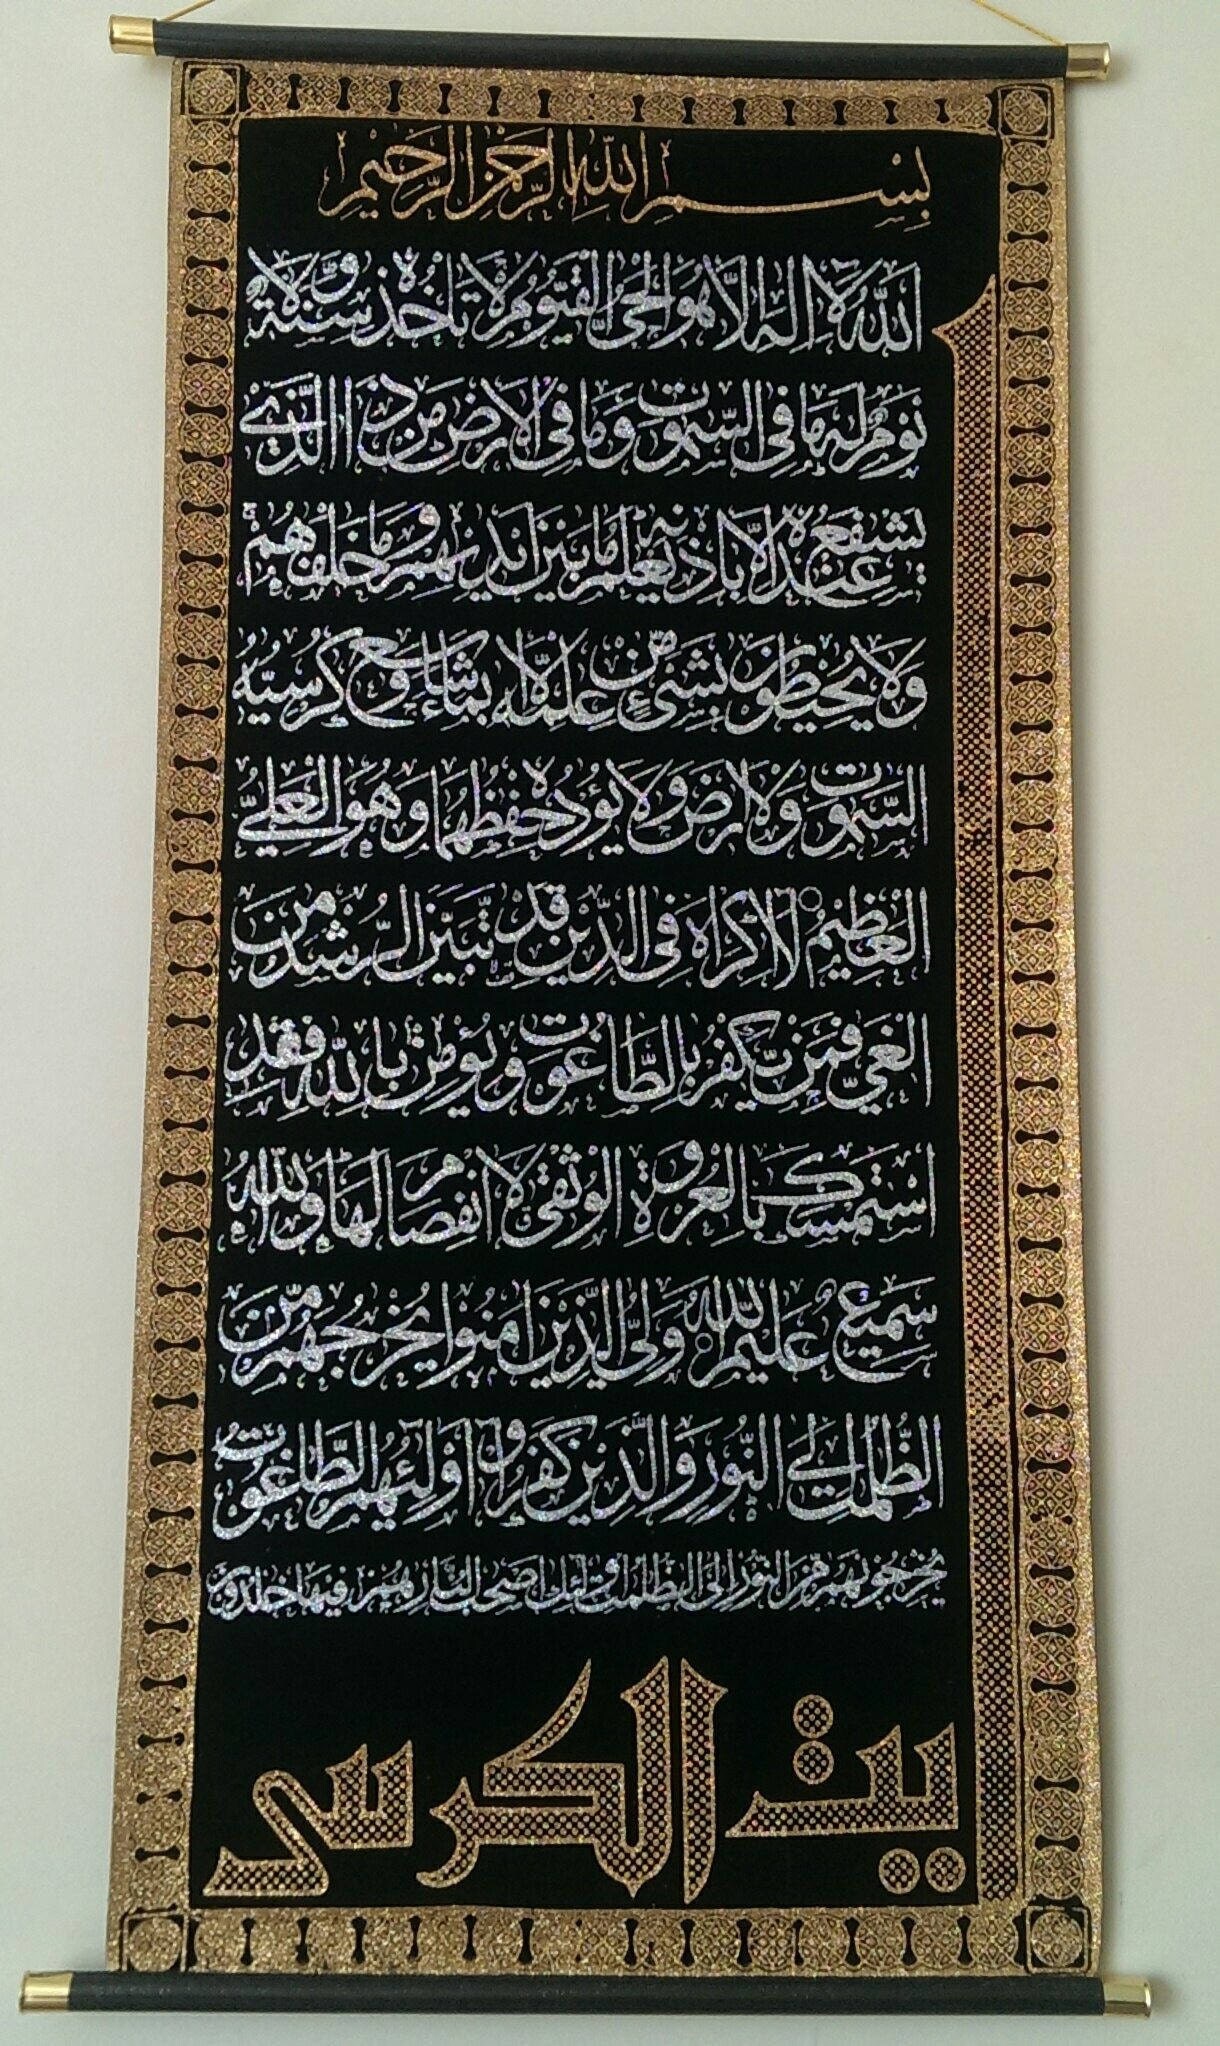 بِسْمِ اللهِ الرَّحْمٰنِ الرَّحِيْمِ
اَللّٰهُ لَا اِلٰهَ اِلَّا هُوَ الْحَىُّ الْقَيُّوْمُ لَا تَاْخُذُهٗ سِنَةٌ وَّلَا
نَوْمٌ لَهٗ مَا فِى السَّمٰوٰتِ وَمَا فِى الْاَرْضِ مَنْ ذَا الَّذِىْ
يَشْفَعُ عِنْدَهٗ اِلَّا بِاِذْنِهٖ يَعْلَمُ مَا بَيْنَ اَيْدِيْهِمْ وَمَا خَلْفَهُمْ
وَلَا يُحِيْطُوْنَ بِشَىْءٍ مِّنْ عِلْمِهٖ اِلَّا بِمَا شَاءَ وَسِعَ كُرْسِيُّهُ
السَّمٰوٰتِ وَالْاَرْضَ وَلَا يَؤُدُهٗ حِفْظُهُمَا وَهُوَ الْعَلِىُّ
الْعَظِيْمُ لَا اِكْرَاهَ فِى الدِّيْنِ قَدْ تَّبَيَّنَ الرُّشْدُ مِنَ
الْغَىِّ فَمَنْ يَّكْفُرْ بِالطَّاغُوْتِ وَيُؤْمِنْ بِاللّٰهِ فَقَدِ
اسْتَمْسَكَ بِالْعُرْوَةِ الْوُثْقٰى لَا انْفِصَامَ لَهَا وَاللّٰهُ
سَمِيْعٌ عَلِيْمٌ اَللّٰهُ وَلِىُّ الَّذِيْنَ اٰمَنُوْا يُخْرِجُهُمْ مِّنَ
الظُّلُمٰتِ اِلَى النُّوْرِ وَالَّذِيْنَ كَفَرُوْا اَوْلِيٰٓئُهُمُ الطَّاغُوْتُ
يُخْرِجُوْنَهُمْ مِّنَ النُّوْرِ اِلَى الظُّلُمٰتِ اُولٰٓئِكَ اَصْحٰبُ النَّارِ هُمْ فِيْهَا خٰلِدُوْنَ
ايت الكرسى